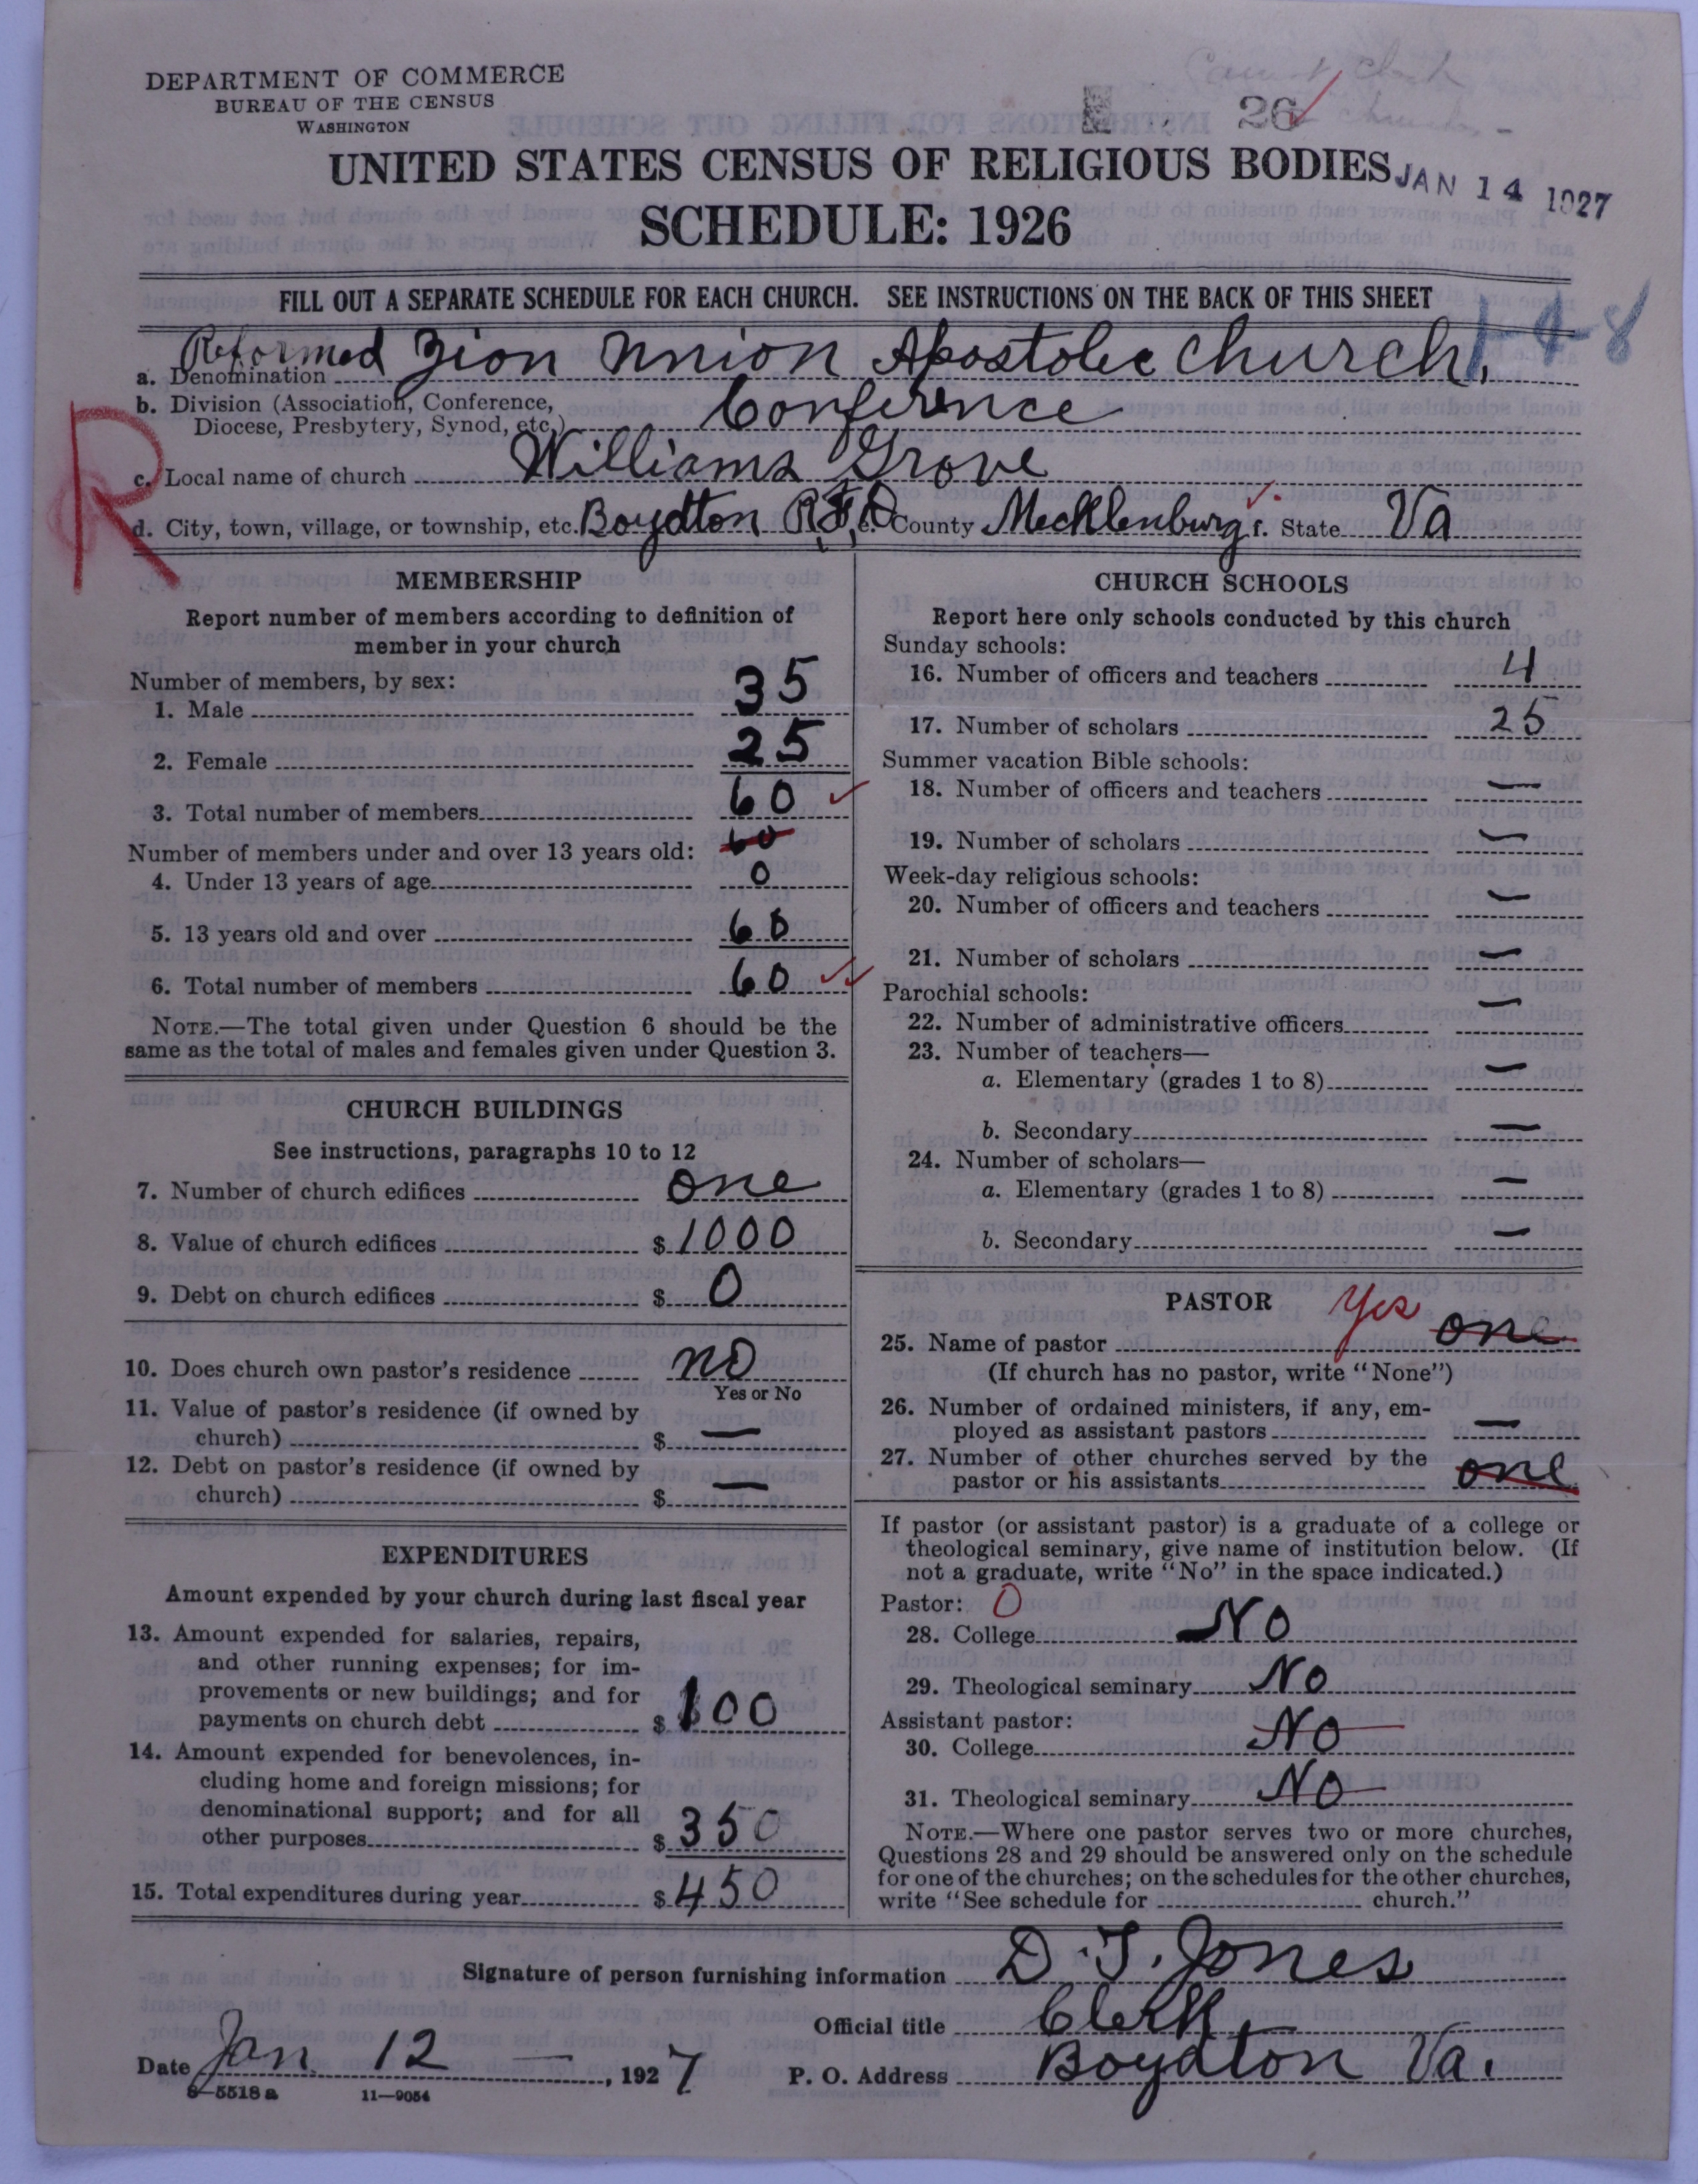 DEPARTMENT OF COMMERCE
BUREAU OF THE CENSUS
WASHINGTON
26
UNITED STATES CENSUS OF RELIGIOUS BODIES
JAN 14 1927
SCHEDULE: 1926
FILL OUT A SEPARATE SCHEDULE FOR EACH CHURCH. SEE INSTRUCTIONS ON THE BACK OF THIS SHEET
1-4-8
a. Denomination Reformed Zion Union Apostolic Church.
b. Division (Association, Conference,
Diocese, Presbytery, Synod, etc.) Conference
R
c. Local name of church Williams Grove
d. City, town, village, or township, etc. Boydton R.F.D e. County Mecklenburg f. State Va
MEMBERSHIP
Report number of members according to definition of
member in your church
Number of members, by sex:
1. Male 35
2. Female 25
3. Total number of members 60
60
Number of members under and over 13 years old:
4. Under 13 years of age 0
5. 13 years old and over 60
6. Total number of members 60
NOTE.—The total given under Question 6 should be the
same as the total of males and females given under Question 3.
CHURCH BUILDINGS
See instructions, paragraphs 10 to 12
7. Number of church edifices one
8. Value of church edifices $ 1000
9. Debt on church edifices $ 0
10. Does church own pastor's residence no
Yes or No
11. Value of pastor's residence (if owned by
church) $ —
12. Debt on pastor's residence (if owned by
church) $ —
EXPENDITURES
Amount expended by your church during last fiscal year
13. Amount expended for salaries, repairs,
and other running expenses; for im-
provements or new buildings; and for
payments on church debt $ 100
14. Amount expended for benevolences, in-
cluding home and foreign missions; for
denominational support; and for all
other purposes $ 350
15. Total expenditures during year $ 450
CHURCH SCHOOLS
Report here only schools conducted by this church
Sunday schools:
16. Number of officers and teachers 4
17. Number of scholars 25
Summer vacation Bible schools:
18. Number of officers and teachers —
19. Number of scholars —
Week-day religious schools:
20. Number of officers and teachers —
21. Number of scholars —
Parochial schools:
22. Number of administrative officers —
23. Number of teachers—
a. Elementary (grades 1 to 8) —
b. Secondary —
24. Number of scholars—
a. Elementary (grades 1 to 8) —
b. Secondary —
PASTOR
25. Name of pastor Yes one
(If church has no pastor, write "None")
26. Number of ordained ministers, if any, em-
ployed as assistant pastors —
27. Number of other churches served by the
pastor or his assistants one
If pastor (or assistant pastor) is a graduate of a college or
theological seminary, give name of institution below. (If
not a graduate, write "No" in the space indicated.)
Pastor: 0
28. College No
29. Theological seminary No
Assistant pastor:
30. College No
31. Theological seminary No
NOTE.—Where one pastor serves two or more churches,
Questions 28 and 29 should be answered only on the schedule
for one of the churches; on the schedules for the other churches,
write "See schedule for church."
Signature of person furnishing information D. T. Jones
Official title Clerk
Date Jan. 12 — , 1927 P. O. Address Boydton Va.
8—5518 a 11—9054